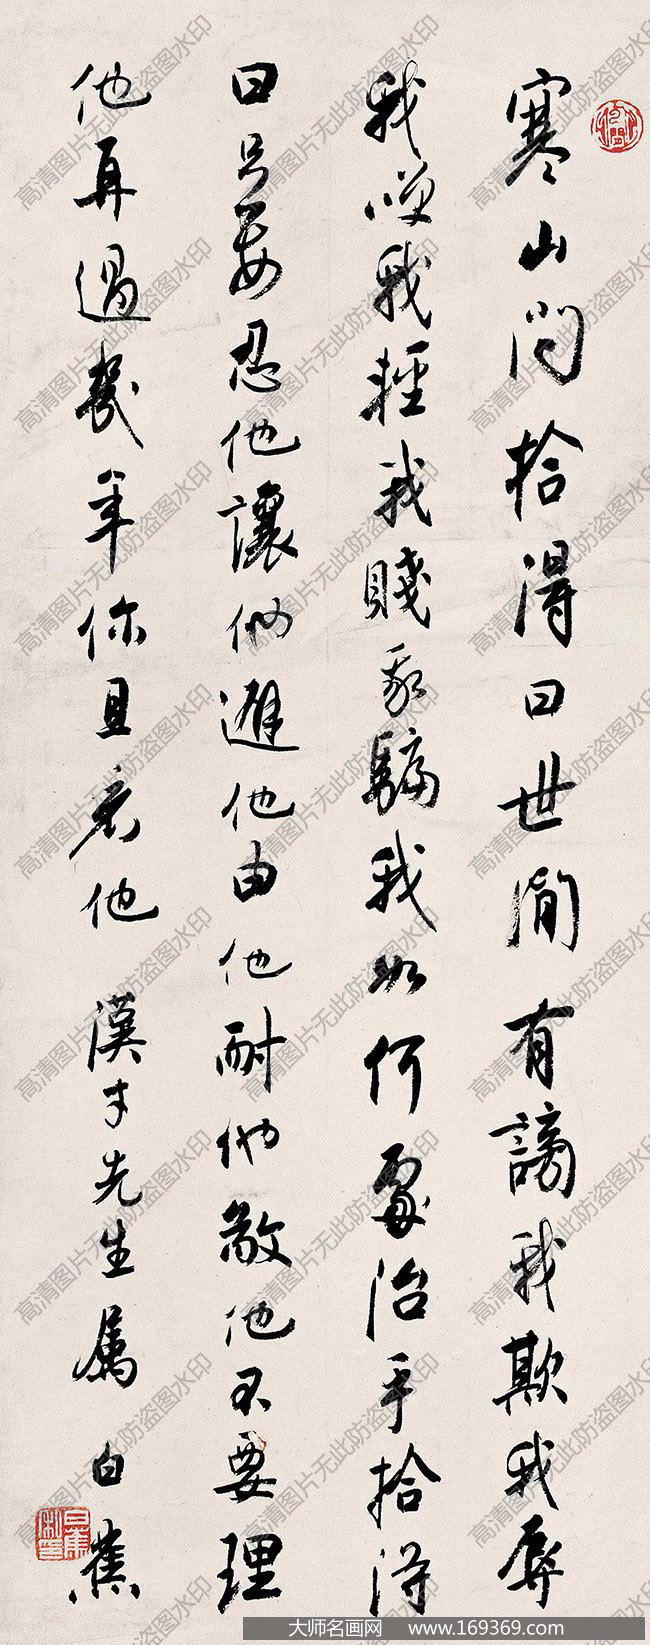 寒山問拾得曰世間有謗我欺我辱
我咲我輕我賤我騙我如何處治乎拾得
曰只要忍他讓他避他由他耐他敬他不要理
他再過幾年你且看他 漢才先生屬 白蕉
高清图片无此防盗图水印
大师名画网 www.169369.com